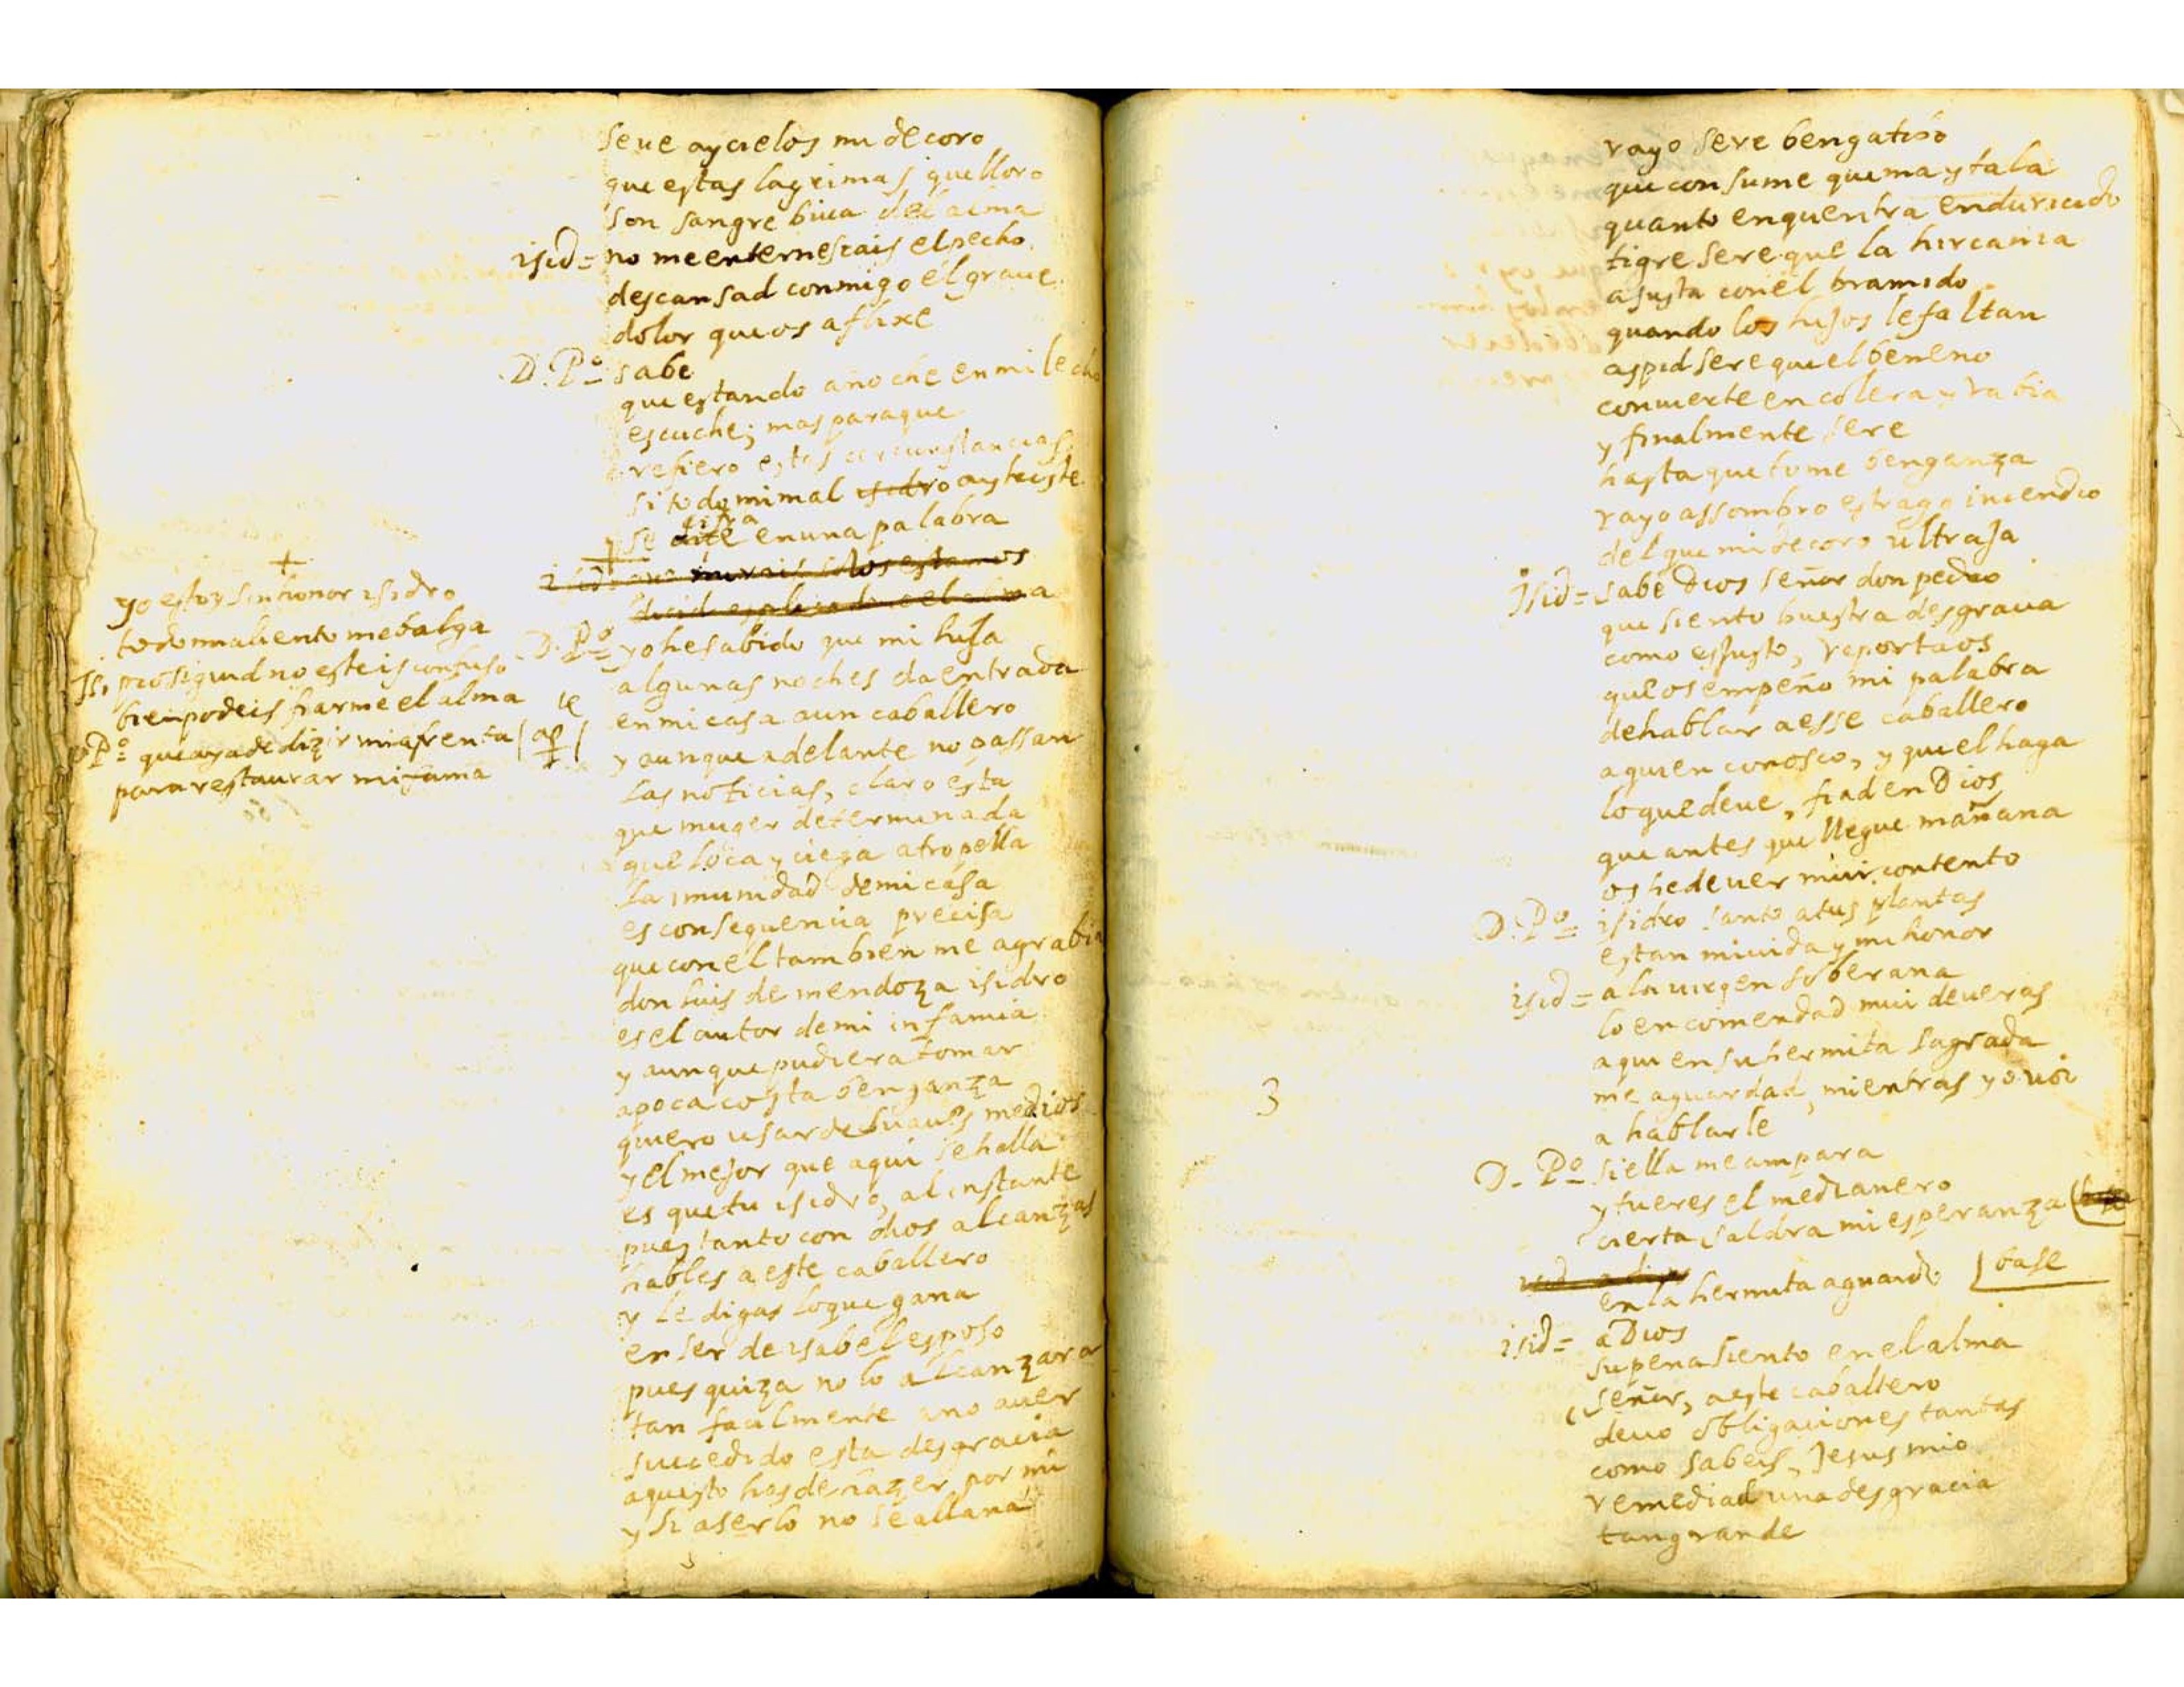 seue ay cielos mi decoro
que estas lagrimas que lloro
son sangre biua del alma
isid= no me enternescais el pecho
descansad conmigo el graue
dolor que os aflixe
D. Po= sabe
que estando anoche en mi lecho
escuche; mas para que
refiero estas circunstancias
si todo mi mal isidro ay triste
cifra
se dise en una palabra
isid= no mirais solos estamos
el alma
+
yo estoy sin honor isidro
todo mi aliento me balga
Is. proseguid no esteis confuso
bien podeis fiarme el alma
D Po= que aya de dizir mi afrenta (ap
para restaurar mi fama
D. Po= yo he sabido que mi hija
algunas noches da entrada
en mi casa a un caballero
y aunque adelante no passan
las noticias, claro esta
que muger determinada
que loca y ciega atropella
la imunidad de mi casa
es consequencia precisa
que con el tambien me agrabia
don luis de mendoza isidro
es el autor de mi infamia
y aunque pudiera tomar
a poca costa benganza
quiero usar de suaues medios
y el mejor que aqui se halla
es que tu isidro, al instante
pues tanto con dios alcanzas
hables a este caballero
y le digas lo que gana
en ser de isabel esposo
pues quiza no lo alcanzara
tan facilmente a no auer
sucedido esta desgracia
aquesto has de hazer por mi
y si aserlo no se allana
rayo sere bengatibo
que consume quema y tala
quanto enquentra endurecido
tigre sere que la hircania
asusta con el bramido
quando los hijos le faltan
aspid sere que el beneno
conuierte en colera y rabia
y finalmente sere
hasta que tome benganza
rayo assombro estrago incendio
del que mi decoro ultraja
Isid= sabe Dios señor don pedro
que siento buestra desgracia
como es justo, reportaos
que os empeño mi palabra
de hablar a esse caballero
a quien conosco, y que el haga
lo que deue, fiad en Dios
que antes que llegue mañana
os he de uer mui contento
D. Po= isidro santo a tus plantas
estan mi uida y mi honor
isid= a la uirgen soberana
lo encomendad mui de ueras
aqui en su hermita sagrada
me aguardad, mientras yo uoi
a hablarle
D. Po= si ella me ampara
y tu eres el medianero
cierta saldra mi esperanza
isid= a dios
en la hermita aguardo base
isid= a Dios
su pena siento en el alma
señor, a este caballero
deuo obligaciones tantas
como sabeis, Jesus mio
remediad una desgracia
tan grande
3